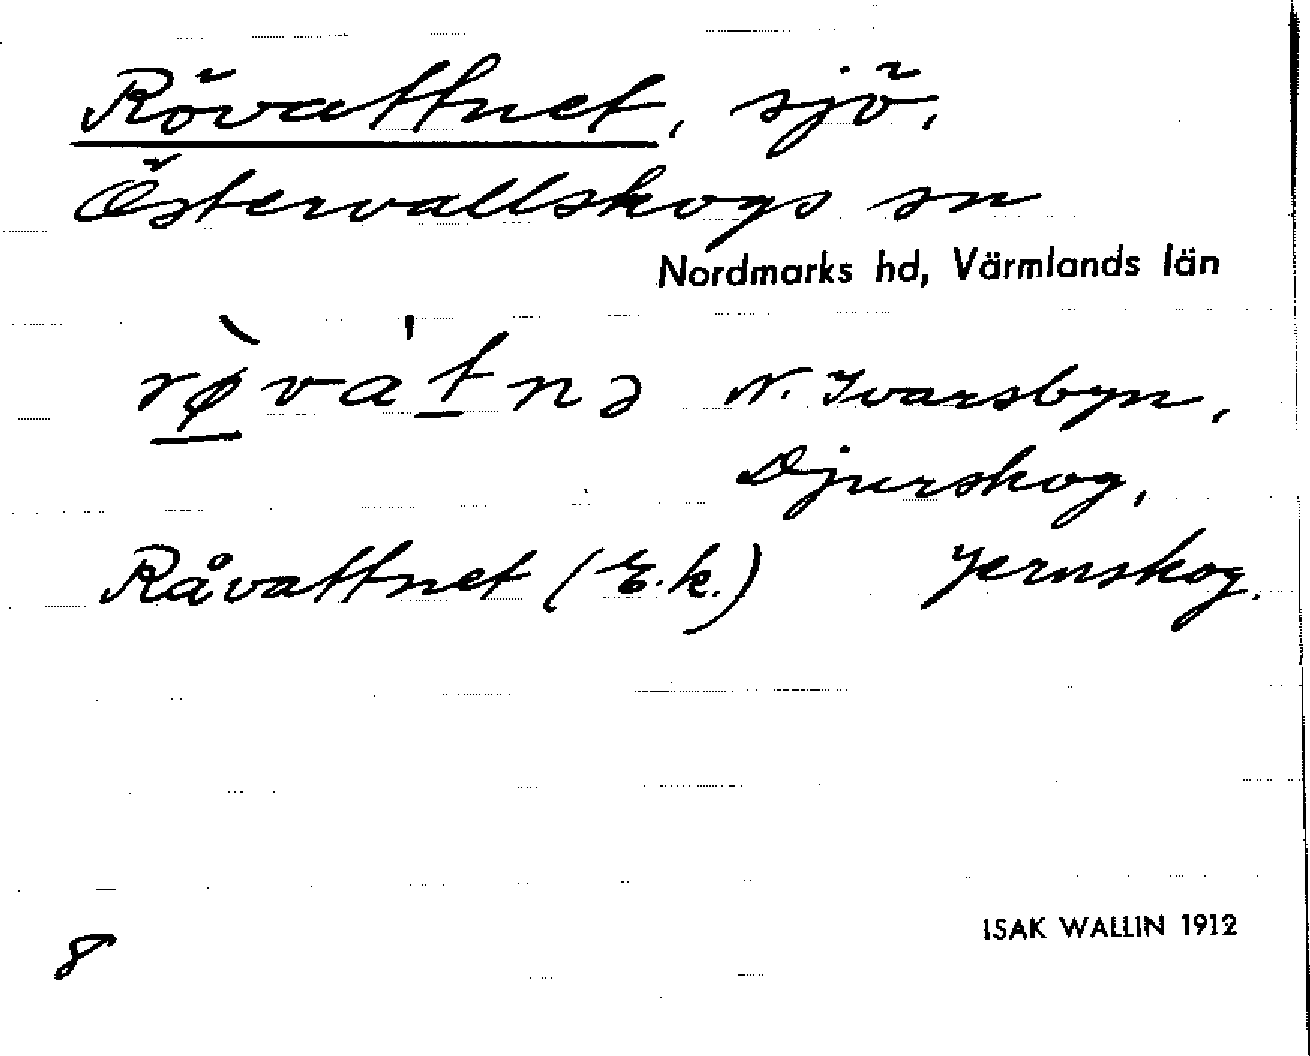 Rövattnet, sjö,
Östervallskogs sn
Nordmarks hd, Värmlands län
rø̀va'tnə N. Ivarsbyn,
Djurskog,
Råvattnet (E.k.) Jernskog.
8
ISAK WALLIN 1912